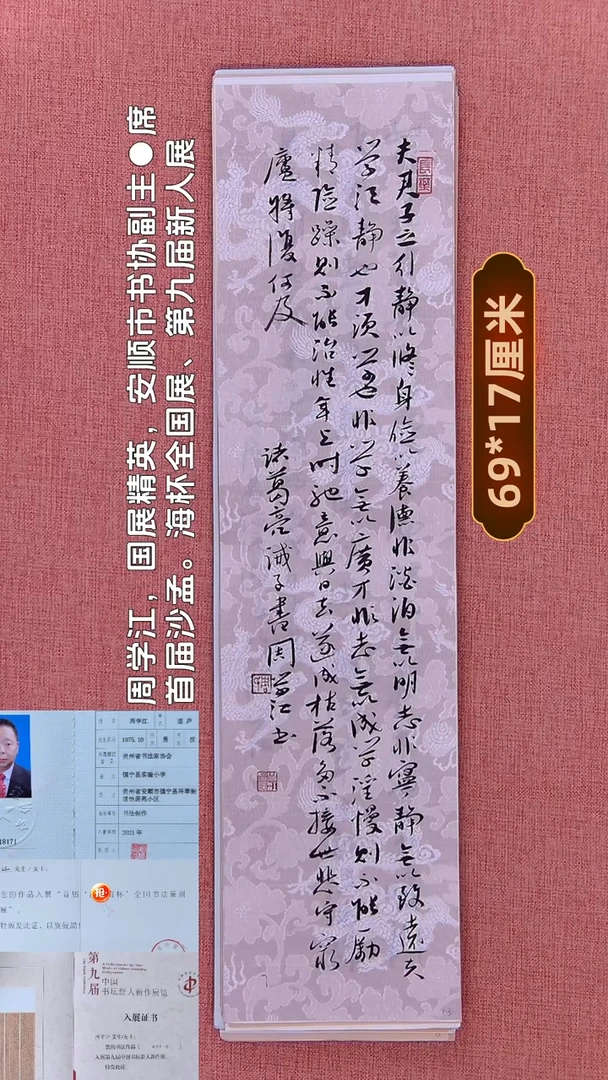 夫君子之行静以修身俭以養德非淡泊無以明志非寧静無以致遠夫
学須静也才須学也非学無以廣才非志無以成学淫慢则不能勵
精险躁则不能治性年与时驰意與日去遂成枯落多不接世悲守窮
廬將復何及
诸葛亮诫子书周学江书
周学江，国展精英，安顺市书协副主●席
首届沙孟。海杯全国展、第九届新人展
69*17厘米
周学江
1975.10
男
汉
贵州省书法家协会
镇宁县实验小学
书法创作
2021年
18171
先生/女士：
抢
特颁发此证，以资鼓励
第九届
中国
书坛新人新作展览
入展证书
周学江 先生/女士：
您的书法作品
入展第九届中国书坛新人新作展
特发此证